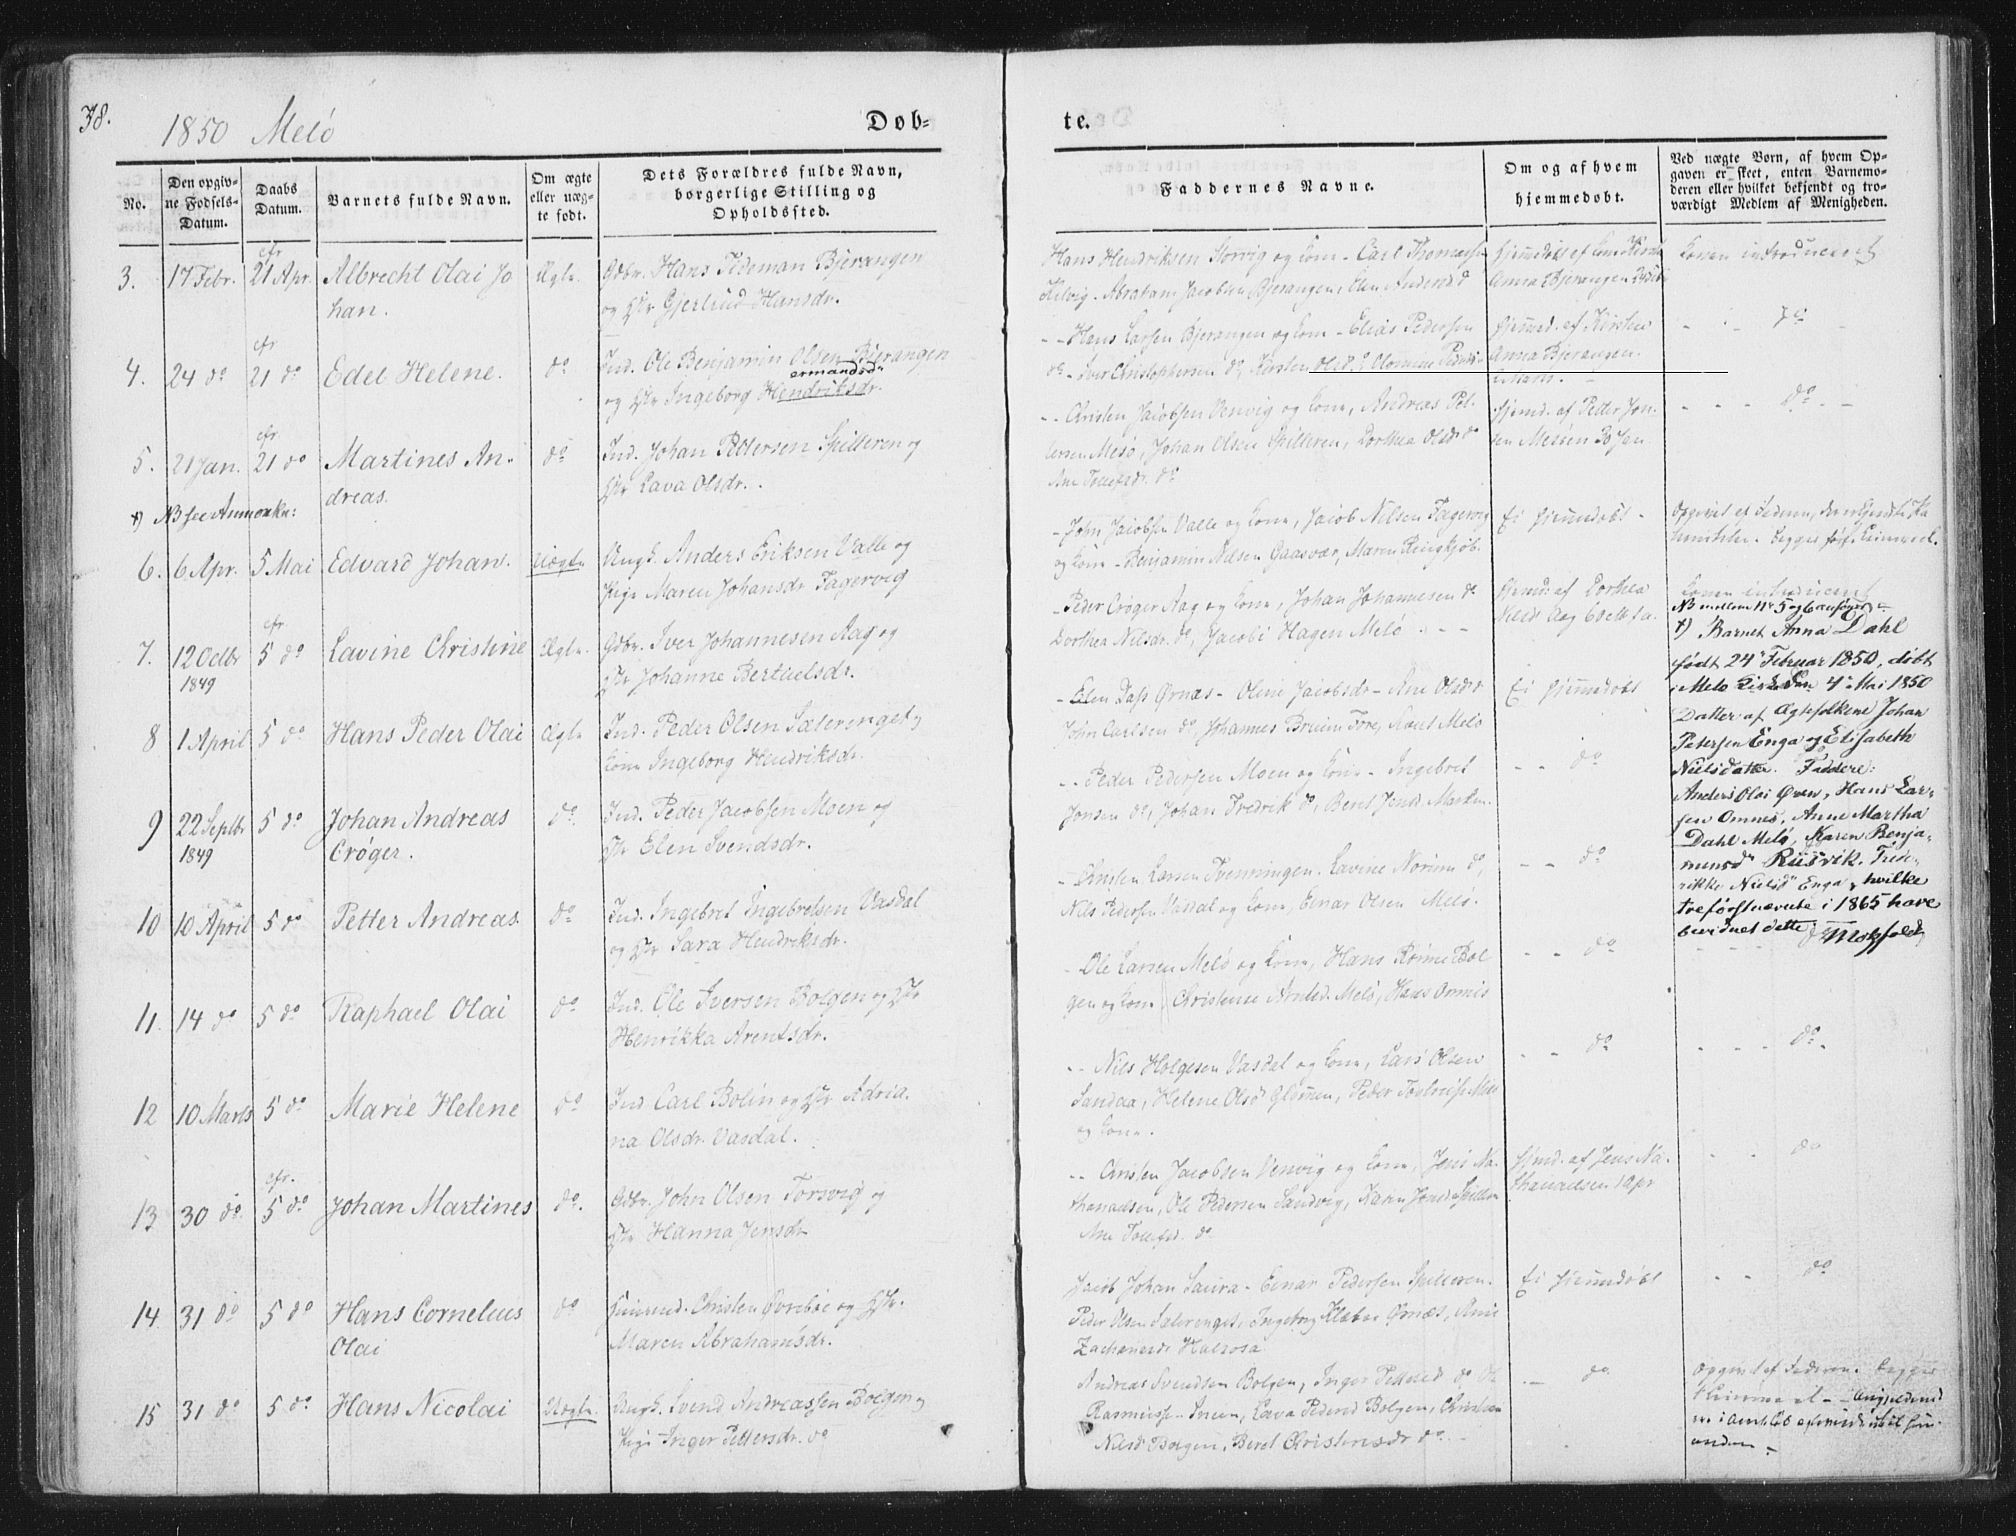 38.
1850 Melö
Døb-
te.
No.
Den opgiv-
ne Fødsels-
Datum.
Daabs
Datum.
Barnets fulde Navn.
Om ægte
eller uæg-
te født.
Dets Forældres fulde Navn,
borgerlige Stilling og
Opholdssted.
Faddernes Navne.
Om og af hvem
hjemmedøbt.
Ved uægte Børn, af hvem Op-
gaven er skeet, enten Barnemo-
deren eller hvilket bekjendt og tro-
værdigt Medlem af Menigheden.
3. 17 Febr. efr 21 Apr. Albrecht Olai Jo
han.
Ægte. Gdbr. Hans Pedeman Bjerangen
og Hstr Gjertrud Hansdr.
Hans Hendriksen Storvig og Kone - Carl Thomassen
Kilvig. Abraham Jacobsen Bjerangen, Elen Andersd do
hjemmedøbt af
Anna Bjerangen
Konen introduceret
4. 24 do efr 21 do Edel Helene. do
Ind. Ole Benjamin Olsen Bjerangen
ermandsdr
og Hstr Ingeborg Hendriksdr.
- - Hans Larsen Bjerangen og Kone - Elias Pedersen
do - Iver Christophersen do, Kirsten Olsd. do
hjemmd. af Kirsten
Anna Bjerangen.
do
5. 21 Jan. efr. 21 do Martines An-
dreas.
do Ind. Johan Pedersen Spilleren og
Hstr Lava Olsdr.
- - Christen Jacobsen Venvig og Kone, Andreas Pet-
tersen Melö, Johan Olsen Spilleren, Dorthea Olsdr do
Ane Tollefsdr. do
hjemd. af Petter Jon-
sen Messen 30 Jan
- - - do - -
†) NB see Anmærkn:
6. 6 Apr. 5 Mai Edvard Johan. Uægte
Ungk. Anders Eriksen Valle og
Pige Maren Johansdr Fagervig
- John Jacobsen Valle og Kone, Jacob Nilsen Fagervig
og Kone - Benjamin Nilsen Gaasvær, Maren Ringkjöb.
Ei hjemmedøbt -
Opgivet af Faderen,
7. 12 Octbr
1849
efr. 5 do Lavine Christine Ægte.
Gdbr. Iver Johannesen Aag og
Hstr Johanne Bertuelsdr.
- Peder Cröger Aag og Kone, Johan Johannesen do
Dorthea Nilsdr. do, Jacobi Hagen Melö - - -
hjemd. af Dorthea
Nilsd Aag
Konen introduceret
NB mellem No 5 og 6 anføres:
†) Barnet Anna Dahl
født 24de Februar 1850, døbt
i Melø Kirke den 4de Mai 1850
Datter af Ægtefolkene Johan
Petersen Enga og Elisabeth
Nielsdatter. Faddere:
Anders Olai Øren, Hans Lar-
sen Omnes, Anne Martha
Dahl Melö, Karen Benja-
minsdr Riisvik, Frede-
rikke Nielsdr Enga, hvilke
tre førstnævnte i 1865 have
bevidnet dette.
8 1 April 5 do Hans Peder Olai Ægte
Ind. Peder Olsen Sæterenget og
Kone Ingeborg Hendriksdr.
- Elen Dass Ørnæs - Oline Jacobsdr - Ane Olsdr do
John Carlsen do, Johannes Bruun Fore, Knut Melö
Ei hjemmedøbt
9 22 Septbr
1849
5 do Johan Andreas
Cröger.
do. Ind. Peder Jacobsen Moen og
Hstr Elen Svendsdr.
- - Peder Pedersen Moen og Kone - Ingebret
Jonsen do, Johan Fredrik do, Beret Jensd
- - do
10 10 April 5 do Petter Andreas. do
Ind. Ingebret Ingebretsen Vasdal
og Hstr Sara Hendriksdr.
- Christen Larsen Tvenningen. Lavine Norum do,
Nils Pedersen Vasdal og Kone, Einar Olsen Melö.
- - do
11. 14 do 5 do Raphael Olai do
Ind. Ole Iversen Bolgen og Hstr
Henrikka Arentsdr.
- Ole Larsen Melö og Kone, Hans Rönne Bol
gen og Kone, Christense Arntsd. Melö, Hans Omnes
- - do
12 10 Marts 5 do Marie Helene do
Ind Carl Bolin og Hstr Adria.
na Olsdr. Vasdal.
- - Nils Holgesen Vasdal og Kone, Lars Olsen
Sandaa, Helene Olsd Glommen, Peder
og Kone.
- - do
- - - do -
13 30 do. efr. 5 do Johan Martines do.
Gdbr. John Olsen Torsvig og
Hstr Hanna Jensdr
- - Christen Jacobsen Venvig og Kone, Jens Na-
thanaelsen, Ole Pedersen Sandvig, Karen Jensd Spilleren
Ane Tollefsd. do
hjemd. af Jens Na-
thanaelsen 1 Apr
- - do
14. 31 do 5 do Hans Cornelius
Olai
do Christen Övrebøe og Hstr.
Maren Abrahamsdr.
Jacob Johan Saura - Einar Pedersen Spilleren.
Peder Olsen Sæterenget, Ingeborg Klæboe Ørnæs, Ane
Zachariasd. Halsosa
Ei hjemmedøbt
- - do
15 31 do 5 do Hans Nicolai Uægte.
Ungk. Svend Andreassen Bolgen og
Pige Inger Pettersdr. do
Andreas Svendsen Bolgen, Inger Pettersd do
Rasmus - Lava Pedersd Bolgen, Christen
Nilsd Bolgen, Beret Christensdr do. -
- - do
Opgivet af Faderen. Begges